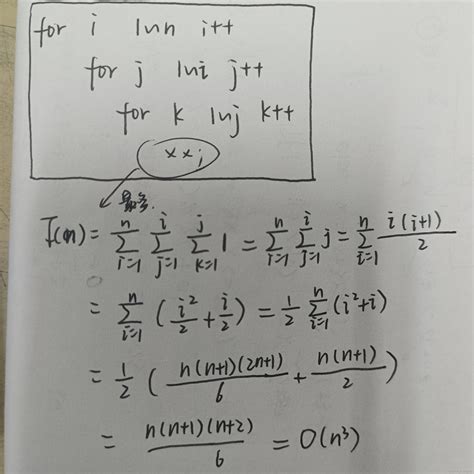 for i 1→n i++
for j 1→i j++
for k 1→j k++
xx;
最多
T(n) = \sum_{i=1}^{n} \sum_{j=1}^{i} \sum_{k=1}^{j} 1 = \sum_{i=1}^{n} \sum_{j=1}^{i} j = \sum_{i=1}^{n} \frac{i(i+1)}{2}
= \sum_{i=1}^{n} (\frac{i^2}{2} + \frac{i}{2}) = \frac{1}{2} \sum_{i=1}^{n} (i^2+i)
= \frac{1}{2} ( \frac{n(n+1)(2n+1)}{6} + \frac{n(n+1)}{2} )
= \frac{n(n+1)(n+2)}{6} = O(n^3)